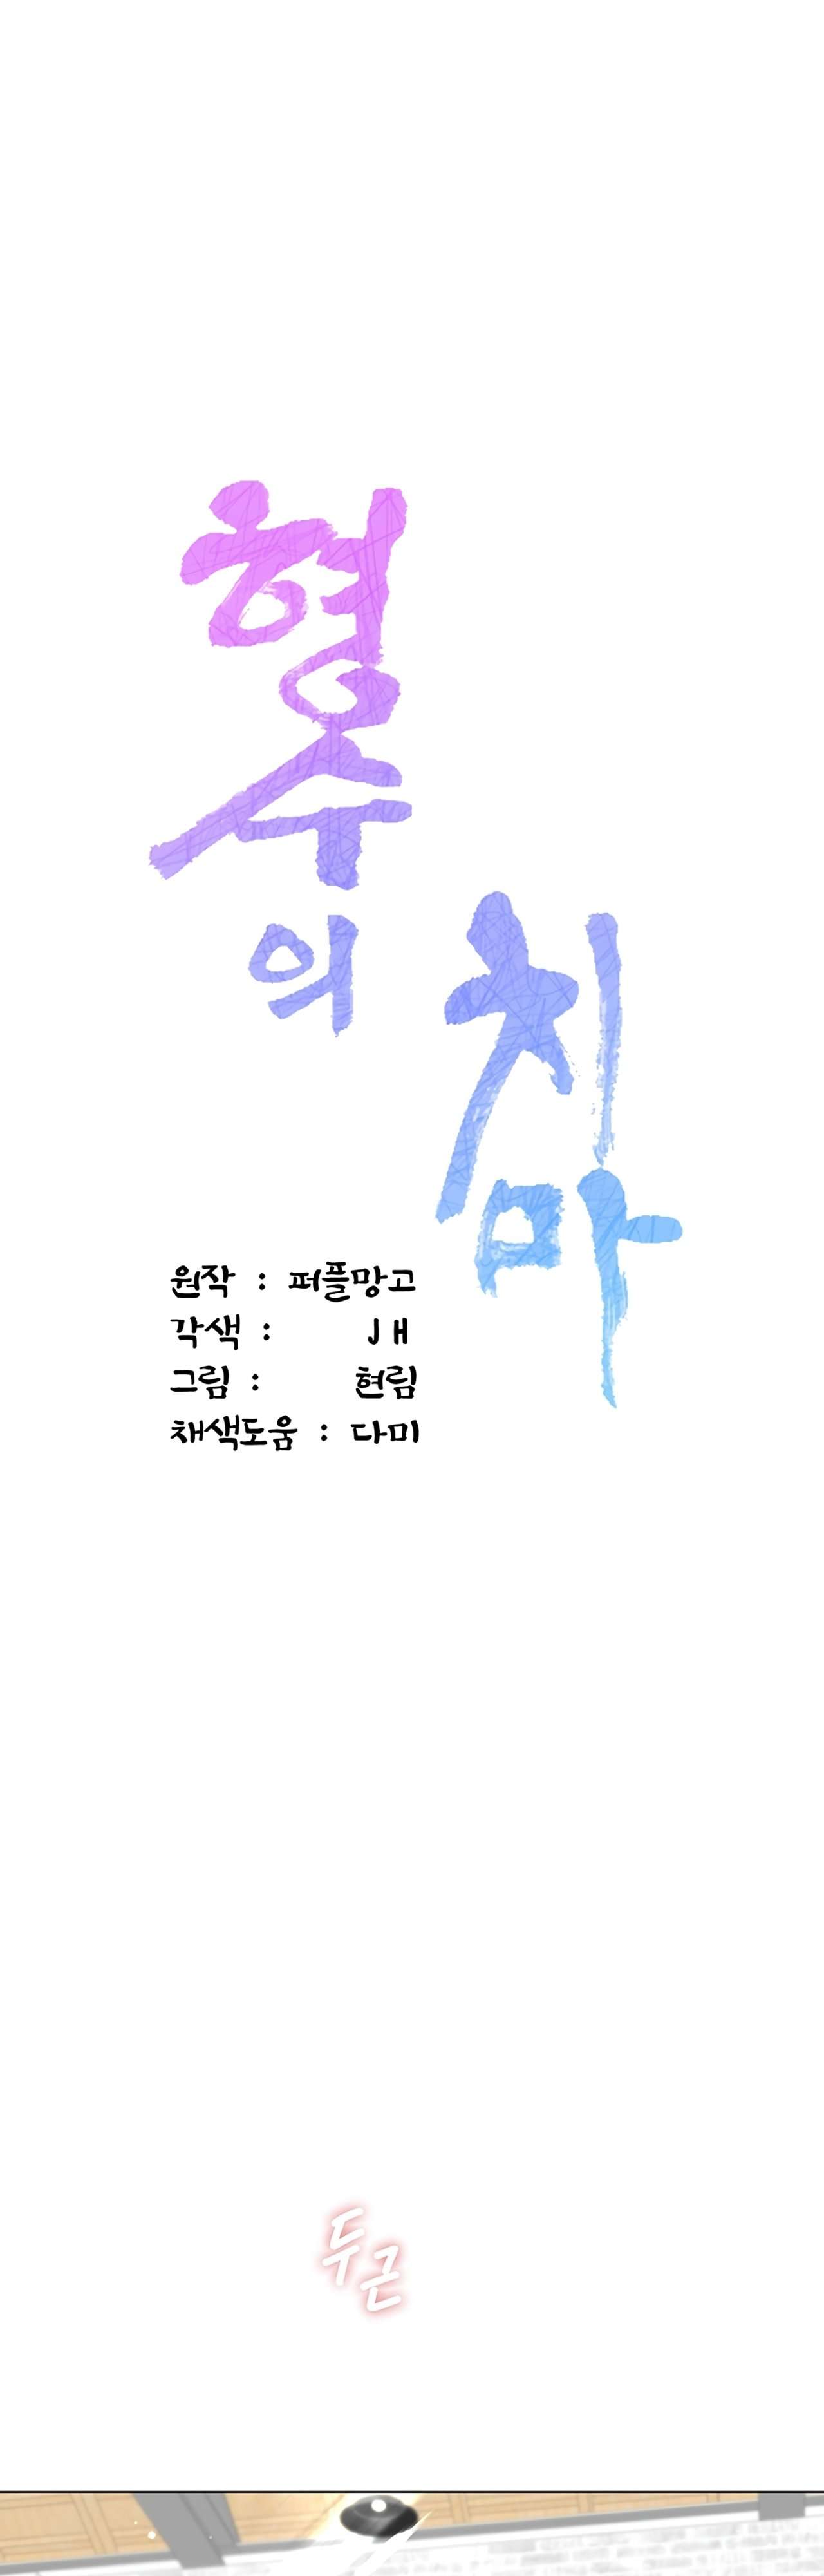 형수의
치마
원작 : 퍼플망고
각색 : JH
그림 : 현림
채색도움 : 다미
두근